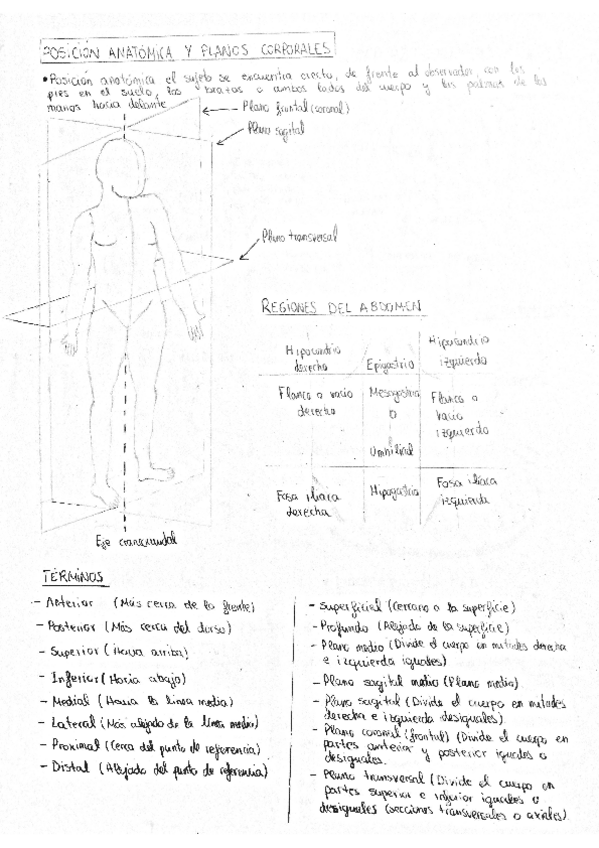 POSICIÓN ANATÓMICA Y PLANOS CORPORALES
• Posición anatómica el sujeto se encuentra erecto, de frente al observador, con los
pies en el suelo, los brazos a ambos lados del cuerpo y las palmas de las
manos hacia delante
Plano frontal (coronal)
Plano sagital
Plano transversal
REGIONES DEL ABDOMEN
Hipocondrio
derecho
Epigastrio
Hipocondrio
izquierdo
Flanco o vacio
derecho
Mesogastrio
o
Umbilical
Flanco o
vacio
izquierdo
Fosa iliaca
derecha
Hipogastrio
Fosa iliaca
izquierda
Eje craneocaudal
TÉRMINOS
- Anterior (Más cerca de la frente)
- Posterior (Más cerca del dorso)
- Superior (Hacia arriba)
- Inferior (Hacia abajo)
- Medial (Hacia la línea media)
- Lateral (Más alejado de la línea media)
- Proximal (Cerca del punto de referencia)
- Distal (Alejado del punto de referencia)
- Superficial (Cercano a la superficie)
- Profundo (Alejado de la superficie)
- Plano medio (Divide el cuerpo en mitades derecha
e izquierda iguales)
- Plano sagital medio (Plano medio)
- Plano sagital (Divide el cuerpo en mitades
derecha e izquierda desiguales).
- Plano coronal (frontal) (Divide el cuerpo en
partes anterior y posterior iguales o
desiguales.
- Plano transversal (Divide el cuerpo en
partes superior e inferior iguales o
desiguales (secciones transversales o axiales).